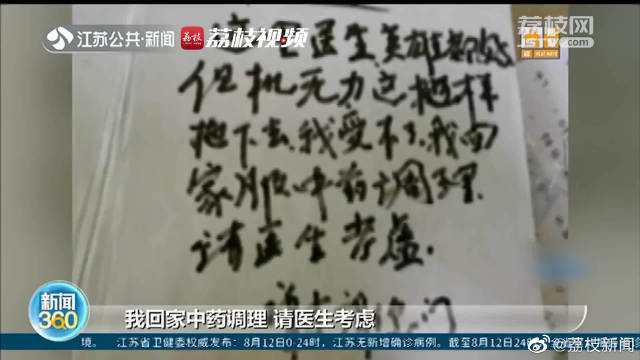 江苏公共·新闻
荔枝视频
荔枝网
医生英雄
但机无力这拖样
拖下去我受不了我回
家服中药调理
请医生考虑.
新闻
360
我回家中药调理 请医生考虑
境。 江苏省卫健委权威发布：8月12日0-24时，江苏无新增确诊病例。截至8月12日24
@荔枝新闻